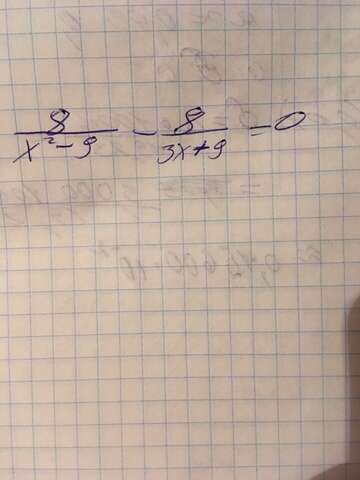 8/(x² - 9) - 8/(3x + 9) = 0